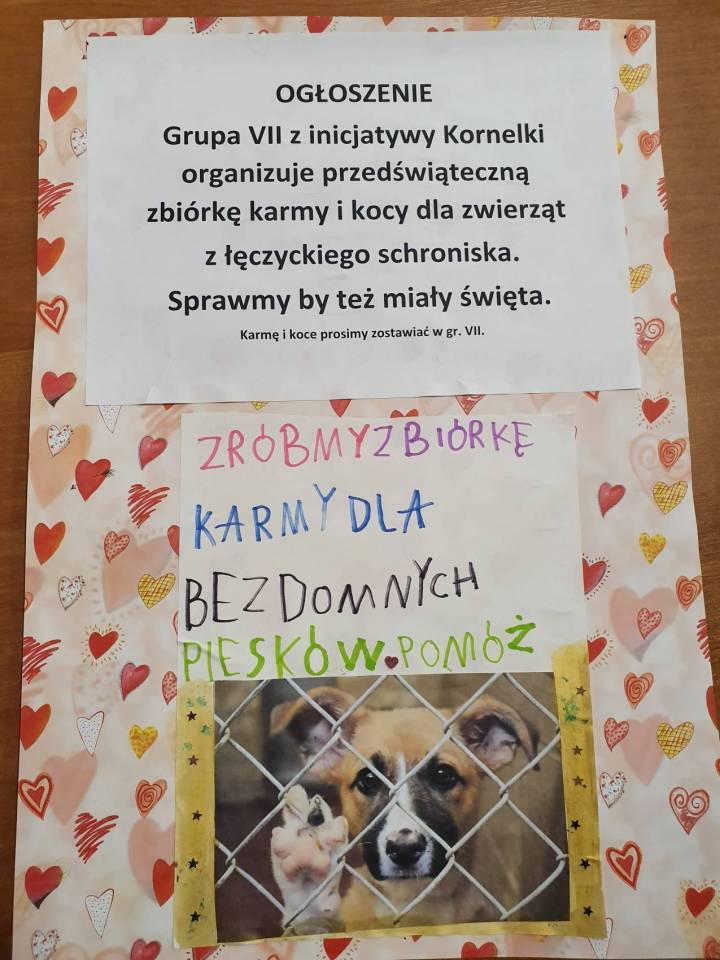 OGŁOSZENIE
Grupa VII z inicjatywy Kornelki
organizuje przedświąteczną
zbiórkę karmy i kocy dla zwierząt
z łęczyckiego schroniska.
Sprawmy by też miały święta.
Karmę i koce prosimy zostawiać w gr. VII.
ZRÓBMY ZBIÓRKĘ
KARMY DLA
BEZDOMNYCH
PIESKÓW.POMÓŻ